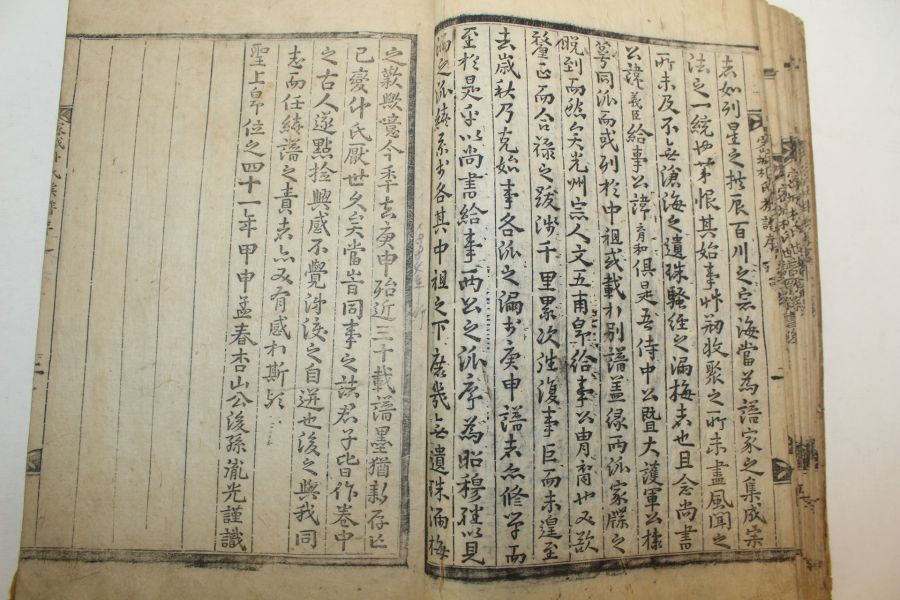 志如列星之拱辰百川之宗海當為譜家之集成宋
法之一統也第恨其始事草刱收聚之所未盡風聞之
所未及不無滄海之遺珠騷經之漏梅志也且念尚書
公諱義臣給事公諱育和俱是吾侍中公曁大護軍公棣
萼同派而或列於中祖或載於別譜盖緣兩派家牒之
晩到而然矣光州宗人文五甫卽給事公冑裔也又欲
釐正而合祿之跋涉千里累次徃復事巨而未遑至
去歲秋乃克始事各派之漏於庚申譜志亦修學而
至於是乎以尚書給事兩公之派序為昭穆繼以見
漏之派繡系於各其中祖之下庶幾無遺珠漏梅
之歎歟噫今年去庚申殆近三十載譜墨猶新存亡
已變仆氏厭世久矣當旹同事之諸君子皆作卷中
之古人遂點捡興感不覺洙淚之自迸也後之與我同
志而任緝譜之責者亦又有感於斯歟
聖上卽位之四十一年甲申孟春杏山公後孫胤光謹識